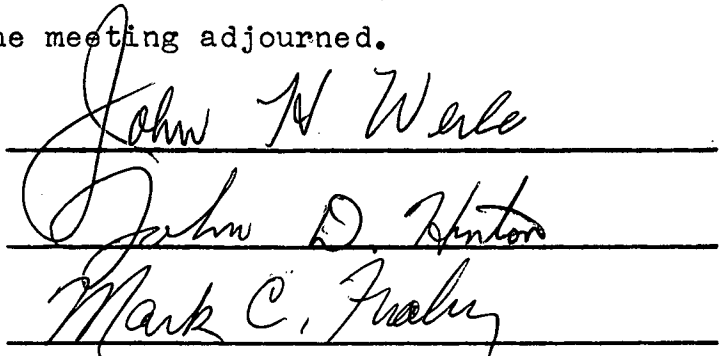 he meeting adjourned.
John H Werle
John D. Hinton
Mark C.